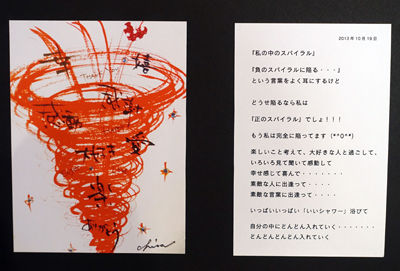 嬉
感動
大好き
愛
楽
ありがとう
chisa
2013年10月19日
『私の中のスパイラル』
『負のスパイラルに陥る・・・』
という言葉をよく耳にするけど
どうせ陥るなら私は
『正のスパイラル』でしょ！！！
もう私は完全に陥ってます (**0**)
楽しいこと考えて、大好きな人と過ごして、
いろいろ見て聞いて感動して
幸せ感じて喜んで・・・・・・・
素敵な人に出逢って・・・・
素敵な言葉に出逢って・・・・
いっぱいいっぱい「いいシャワー」浴びて
自分の中にどんどん入れていく・・・・・・・
どんどんどんどん入れていく